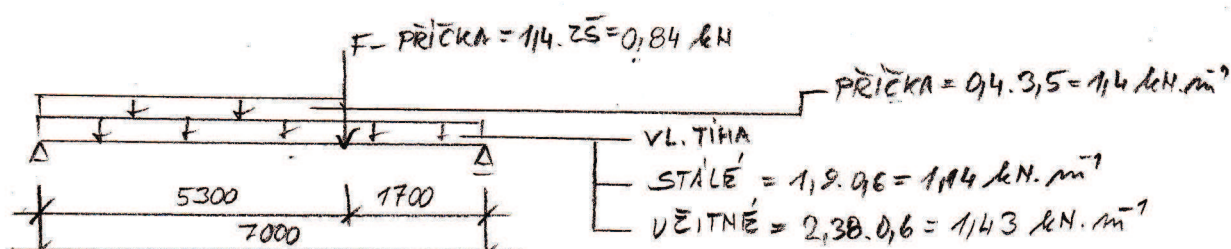 F- PŘÍČKA = 1,4 . ZŠ = 0,84 kN
PŘÍČKA = 0,4 . 3,5 = 1,4 kN.m⁻¹
VL. TÍHA
STÁLÉ = 1,9 . 0,6 = 1,14 kN.m⁻¹
UŽITNÉ = 2,38 . 0,6 = 1,43 kN.m⁻¹
5300
1700
7000